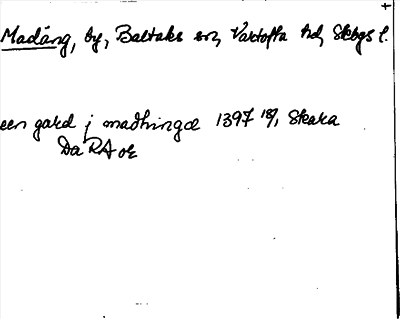 Madäng, by, Baltaks sn, Vartofta hd, Skbgs l.
een gard j madhingæ 1397 18/1 Skara
Da RA oe